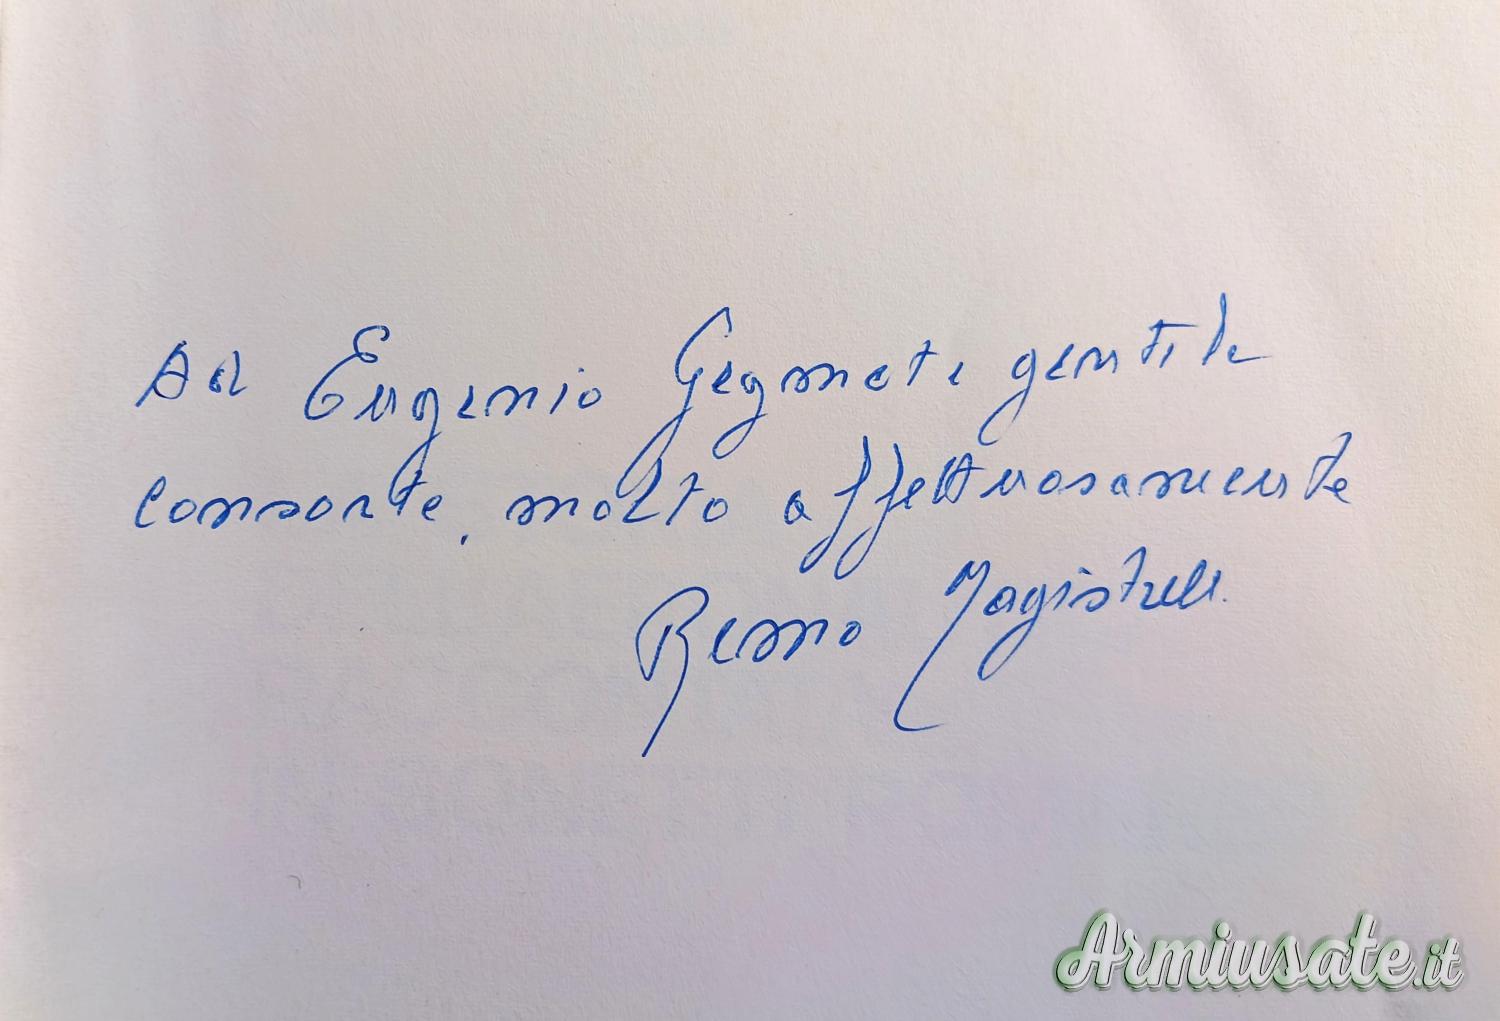 Ad Eugenio e gentile
consorte, molto affettuosamente
Remo Magistrelli
Armiusate.it